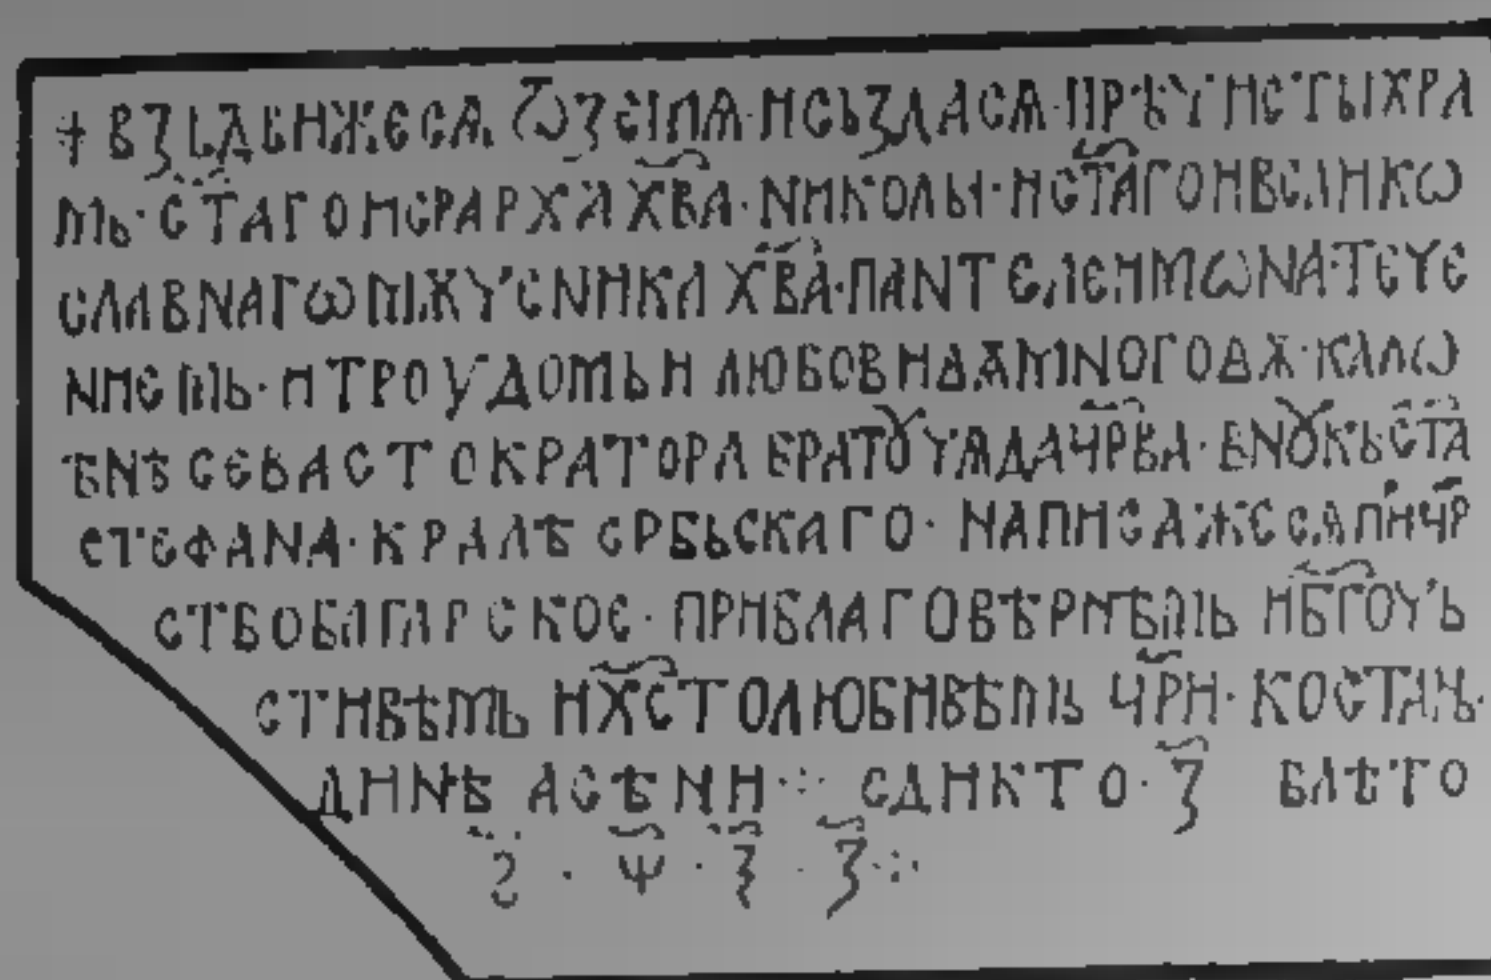 + ВЗЬДВИЖЕСѦ ѾЗЕМЛѦ · И СЬЗДАСѦ · ПРѢЧИСТЫ ХРА
МЬ · СТ҃АГО ИЕРАРХА ХВ҃А · НИКОЛЫ · И СТ҃АГО И ВЕЛИКѠ
СЛАВНАГѠ МѪЧЕНИКА ХВ҃А · ПАНТЕЛЕИМѠНА · ТЕЧЕ
НИЕМЬ · И ТРОУДОМЬ И ЛЮБОВИѪ МНОГОѪ · КАЛѠ
ѢНѢ СЕВАСТОКРАТОРА БРАТꙊЧѦДА ЧР҃ВА · ВНꙊКЬ СТ҃А
СТЕФАНА · КРАЛѢ СРБЬСКАГО · НАПИСА ЖЕ СѦ ПИ ЧР҃
СТВО БЛЪГАРСКОЕ · ПРИ БЛАГОВѢРНѢМЬ И БГ҃ОЧЬ
СТИВѢМЬ И ХС҃ТОЛЮБИВѢМЬ ЧР҃И · КОСТАН ·
ДИНѢ АСѢНИ ·:· ЕДИКТО · З҃ В ЛѢТО
Ѕ҃ · Ѱ҃ · Ѯ҃ · З҃ ·:·